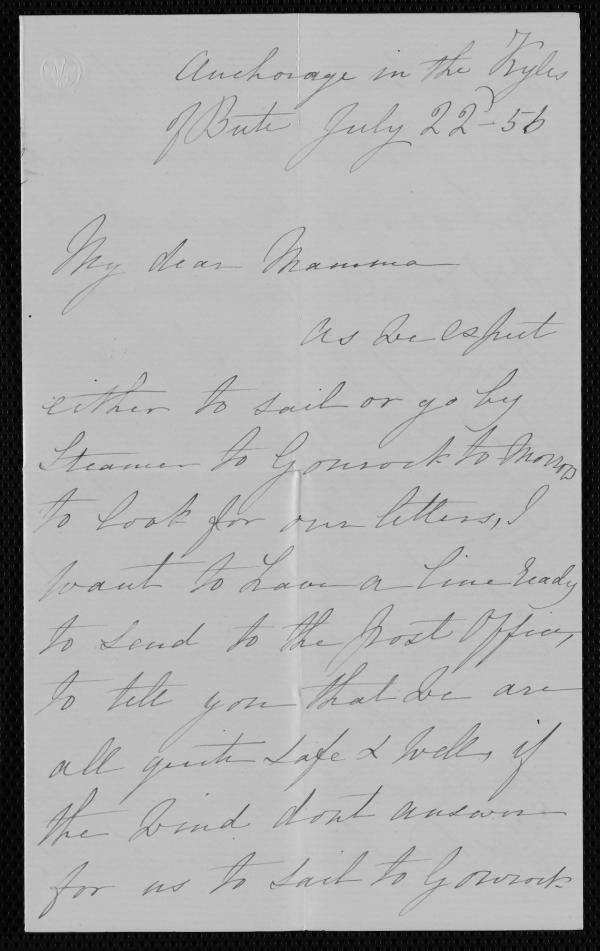 Anchorage in the Kyles
of Bute July 22d - 56
My dear Mamma
As we expect
either to sail or go by
Steamer to Gourock to Morrow
to look for our letters, I
want to have a line ready
to send to the Post Office,
to tell you that we are
all quite safe & well, if
the Wind dont answer
for us to sail to Gourock